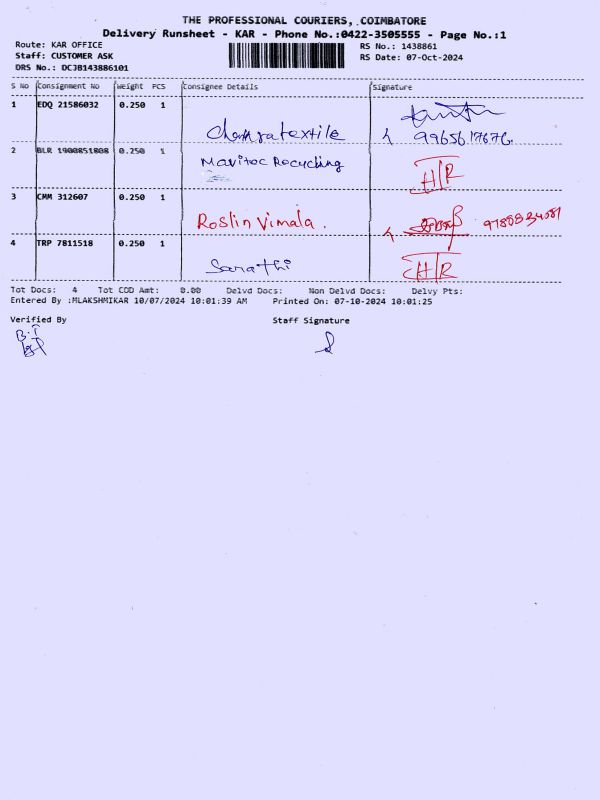 THE PROFESSIONAL COURIERS, COIMBATORE
Delivery Runsheet - KAR - Phone No.:0422-3505555 - Page No.:1
Route: KAR OFFICE
RS No.: 1438861
Staff: CUSTOMER ASK
RS Date: 07-Oct-2024
DRS No.: DCJB143886101
S No Consignment No Weight PCS Consignee Details Signature
1 EDQ 21586032 0.250 1
textile 9965617676.
2 BLR 1900851808 0.250 1 Recycling H/R
3 CMM 312607 0.250 1
Roslin Vimala.
4 TRP 7811518 0.250 1
Sarathi H/R
Tot Docs: 4 Tot COD Amt: 0.00 Delvd Docs: Non Delvd Docs: Delvy Pts:
Entered By :MLAKSHMIKAR 10/07/2024 10:01:39 AM Printed On: 07-10-2024 10:01:25
Verified By Staff Signature